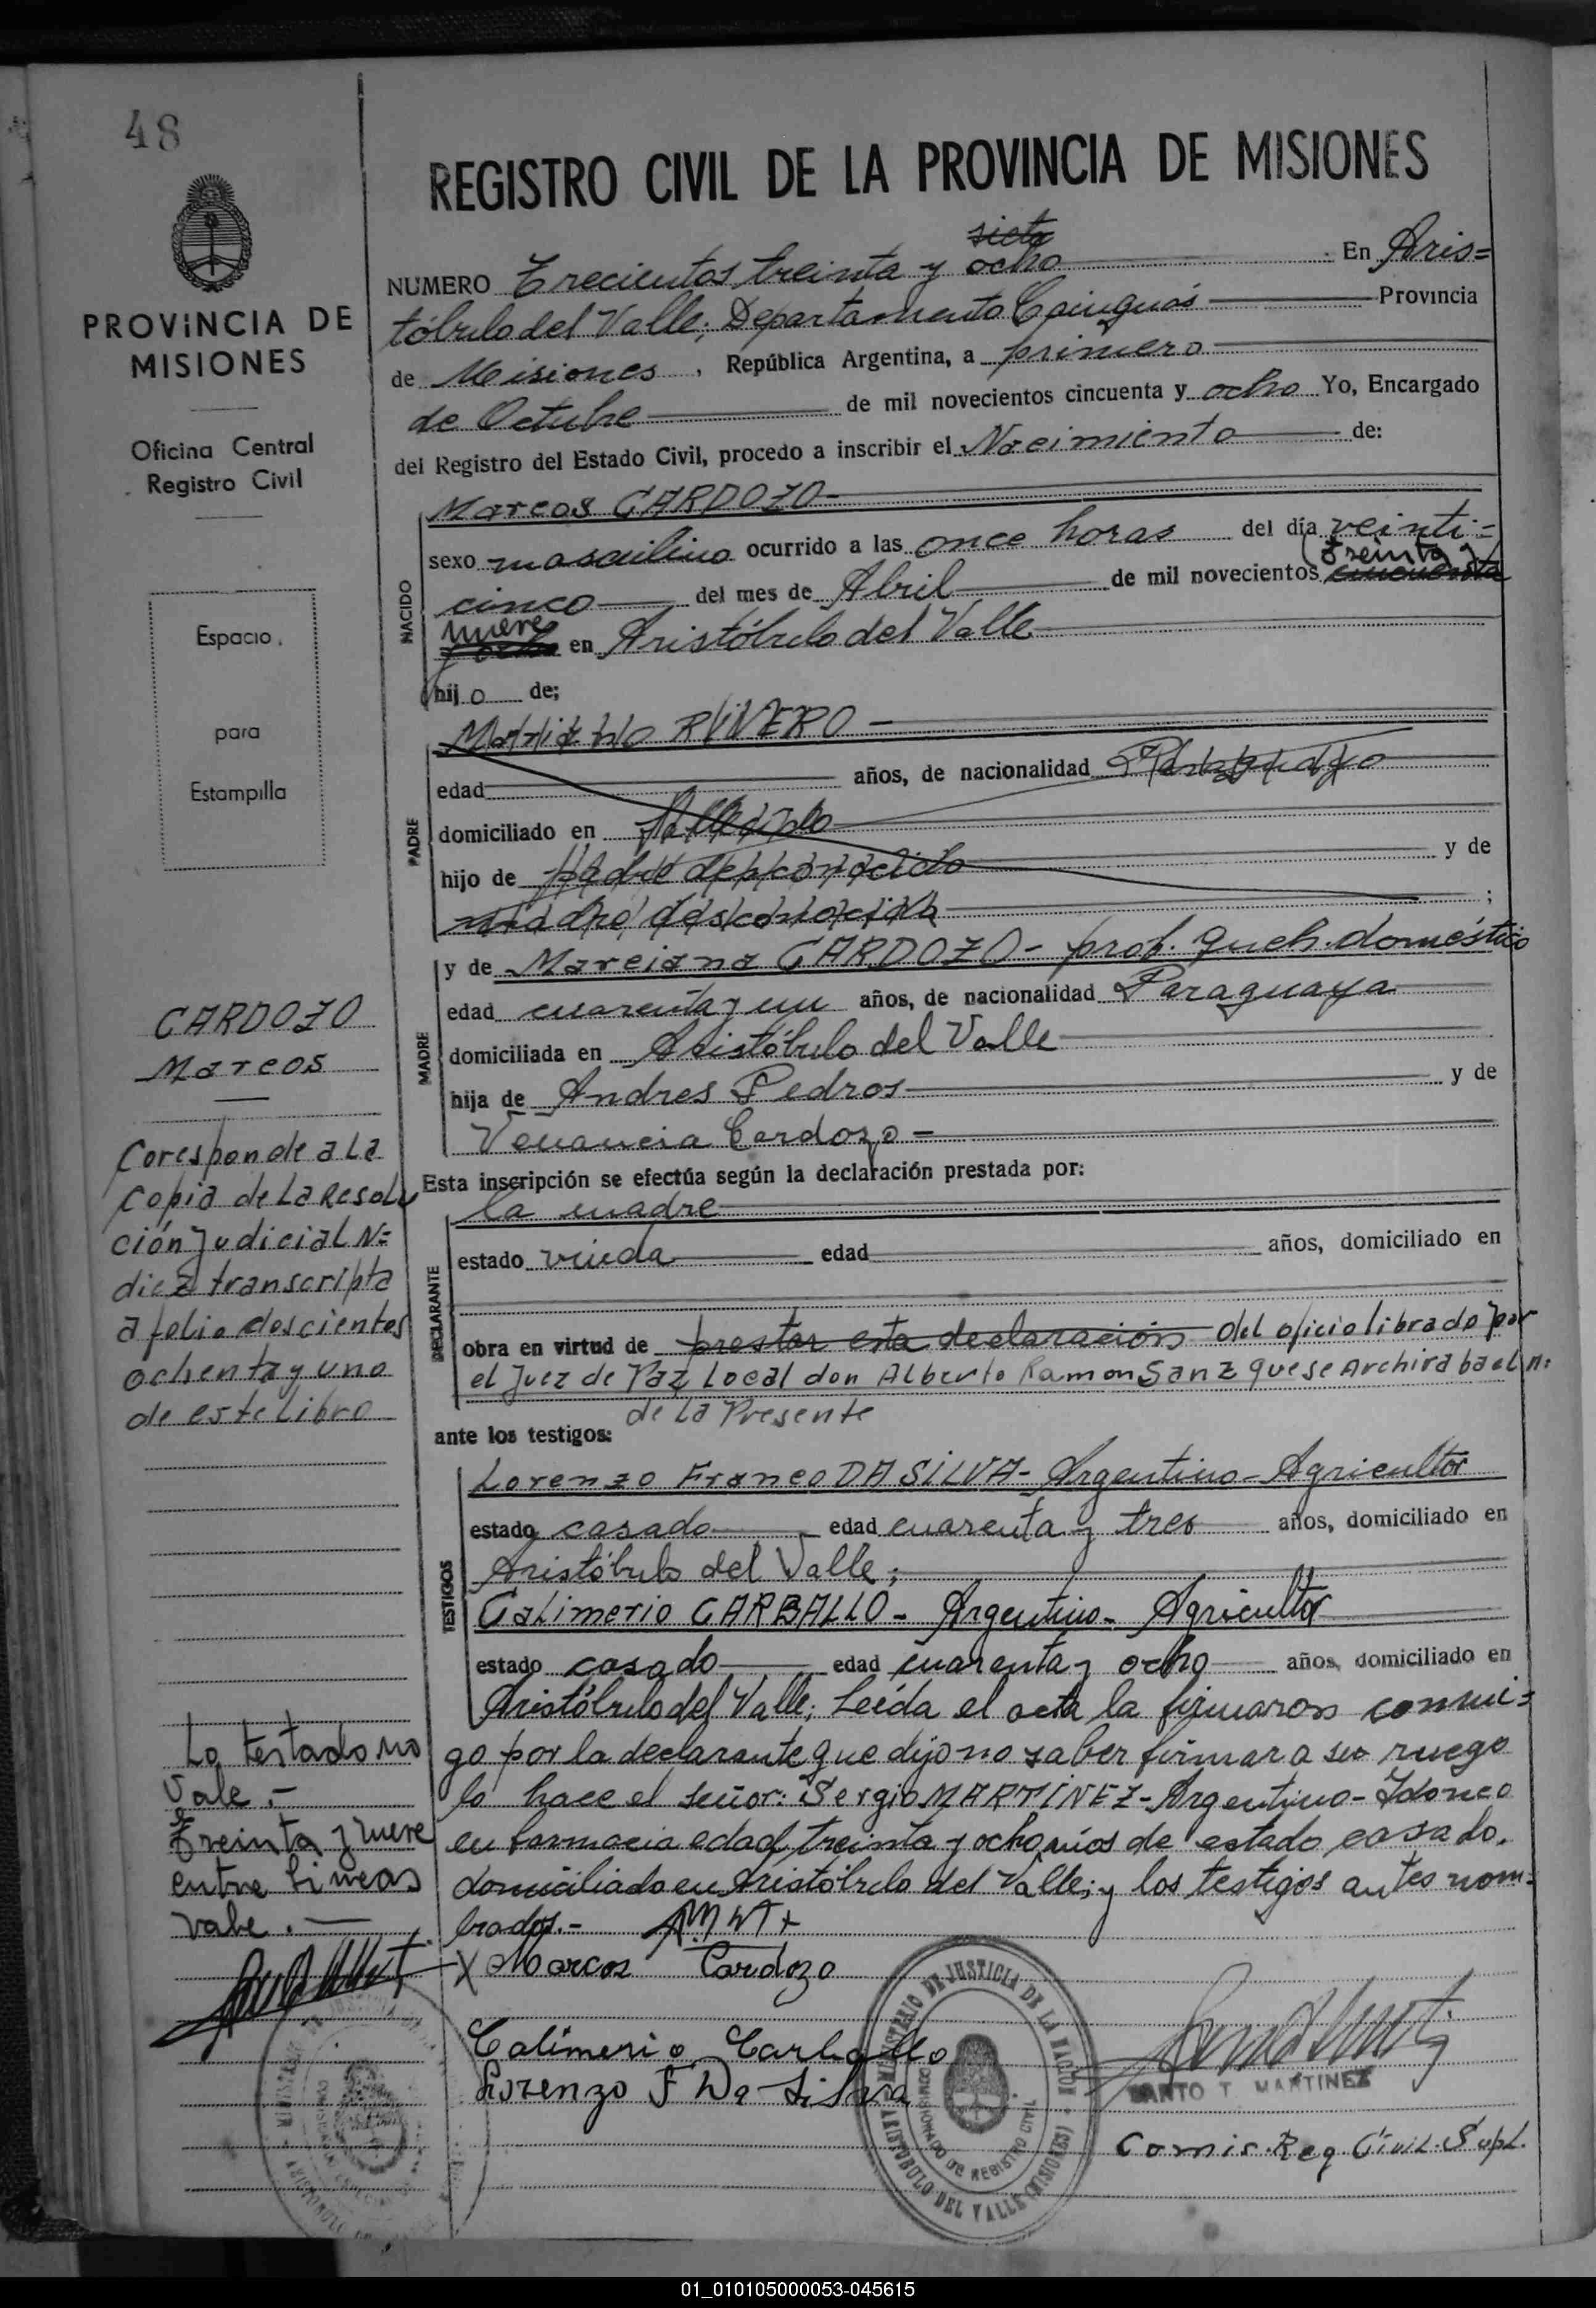 48
REGISTRO CIVIL DE LA PROVINCIA DE MISIONES
PROVINCIA DE
MISIONES
Oficina Central
Registro Civil
Espacio
para
Estampilla
siete
NUMERO Trecientos treinta y ocho En Aris=
tóbulo del Valle; Departamento Cainguás Provincia
de Misiones, República Argentina, a primero
de Octubre de mil novecientos cincuenta y ocho Yo, Encargado
del Registro del Estado Civil, procedo a inscribir el Nacimiento de:
NACIDO
Marcos CARDOZO-
sexo masculino ocurrido a las once horas del día veinti-
treinta y
cinco del mes de Abril de mil novecientos cincuenta
nueve
y ocho en Aristóbulo del Valle
hijo de;
PADRE
Mariano RIVERO -
edad años, de nacionalidad Paraguayo
domiciliado en fallecido
hijo de padre desconocido y de
madre desconocida ;
MADRE
y de Marciana CARDOZO- prof. queh. doméstico
edad cuarenta y un años, de nacionalidad Paraguaya
domiciliada en Aristóbulo del Valle
hija de Andres Pedros y de
Venancia Cardozo -
Esta inscripción se efectúa según la declaración prestada por:
DECLARANTE
la madre
estado viuda edad años, domiciliado en
obra en virtud de prestar esta declaración del oficio librado por
el Juez de Paz Local don Alberto Ramon Sanz que se Archiva ba el n:
de la Presente
ante los testigos:
TESTIGOS
Lorenzo Franco DA SILVA- Argentino- Agricultor
estado casado edad cuarenta y tres años, domiciliado en
Aristóbulo del Valle;
Calimerio CARBALLO- Argentino- Agricultor
estado casado edad cuarenta y ocho años, domiciliado en
Aristóbulo del Valle; Leída el acta la firmaron conmi=
go por la declarante que dijo no saber firmar a su ruego
lo hace el señor: Sergio MARTINEZ-Argentino- Idoneo
en farmacia edad, treinta y ocho años de estado casado,
domiciliado en Aristóbulo del Valle; y los testigos antes nom=
brados.-
X Marcos Cardozo
Calimerio Carballo
Lorenzo F Da Silva
CARDOZO
Marcos
Coresponde a La
copia de La Resolu
ción Judicial N=
diez transcripta
a folio doscientos
ochenta y uno
de este Libro
Lo testado no
Vale.-
Treinta y nueve
entre lineas
vale.-
MINISTERIO DE JUSTICIA DE LA NACION
COMISIONADO DE REGISTRO CIVIL
ARISTOBULO DEL VALLE (MISIONES)
SANTO T. MARTINEZ
Comis. Reg Civil. Supl.
01_010105000053-045615